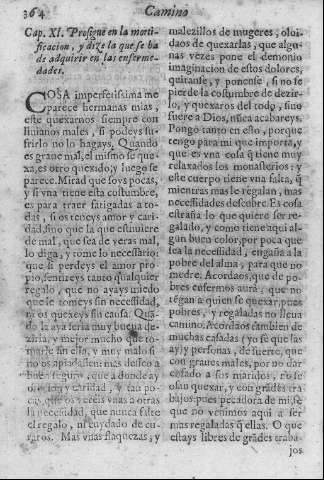 364 Camino
Cap. XI. Prosigue en la morti-
ficacion, y dize la que se ha
de adquirir en las enferme-
dades.
COSA imperfetissima me
parece hermanas mias,
este quexarnos siempre con
liuianos males, si podeys su-
frirlo no lo hagays. Quando
es graue mal, el mismo se que-
xa, es otro quexido, y luego se
parece. Mirad que soys pocas,
y si vna tiene esta costumbre,
es para traer fatigadas a to-
das, si os teneys amor y cari-
dad, sino que la que estuuiere
de mal, que sea de veras mal,
lo diga, y tome lo necessario:
que si perdeys el amor pro-
pio, sentireys tanto qualquier
regalo, que no ayays miedo
que le tomeys sin necessidad,
ni os quexeys sin causa. Quã-
do la aya seria muy bueno de-
zirla, y mejor mucho que to-
marle sin ella, y muy malo si
no os apiadassen: mas desso a
buen seguro, que a donde ay
oracion y caridad, y tan po-
cas, que os veeis vnas a otras
la necessidad, que nunca falte
el regalo, ni el cuydado de cu-
raros. Mas vnas flaquezas, y
malezillos de mugeres, olui-
daos de quexarlas, que algu-
nas vezes pone el demonio
imaginacion de estos dolores,
quitanse, y ponense, si no se
pierde la costumbre de dezir-
lo, y quexaros del todo, sino
fuere a Dios, nũca acabareys.
Pongo tanto en esto, porque
tengo para mi que importa, y
que es vna cosa q̃ tiene muy
relaxados los monasterios: y
este cuerpo tiene vna falta, q̃
mientras mas le regalan, mas
necessidades descubre. Es cosa
estraña lo que quiere ser re-
galado, y como tiene aqui al-
gun buen color, por poca que
sea la necessidad, engaña a la
pobre del alma, para que no
medre. Acordaos, que de po-
bres enfermos aurà, que no
tengan a quien se quexar, pues
pobres, y regaladas no lleua
camino. Acordaos tambien de
muchas casadas (yo sè que las
ay) y personas, de suerte, que
con graues males, por no dar
enfado a sus maridos, no se
osan quexar, y con grãdes tra-
bajos: pues pecadora de mi, sè
que no venimos aqui a ser
mas regaladas q̃ ellas. O que
estays libres de grãdes traba-
jos